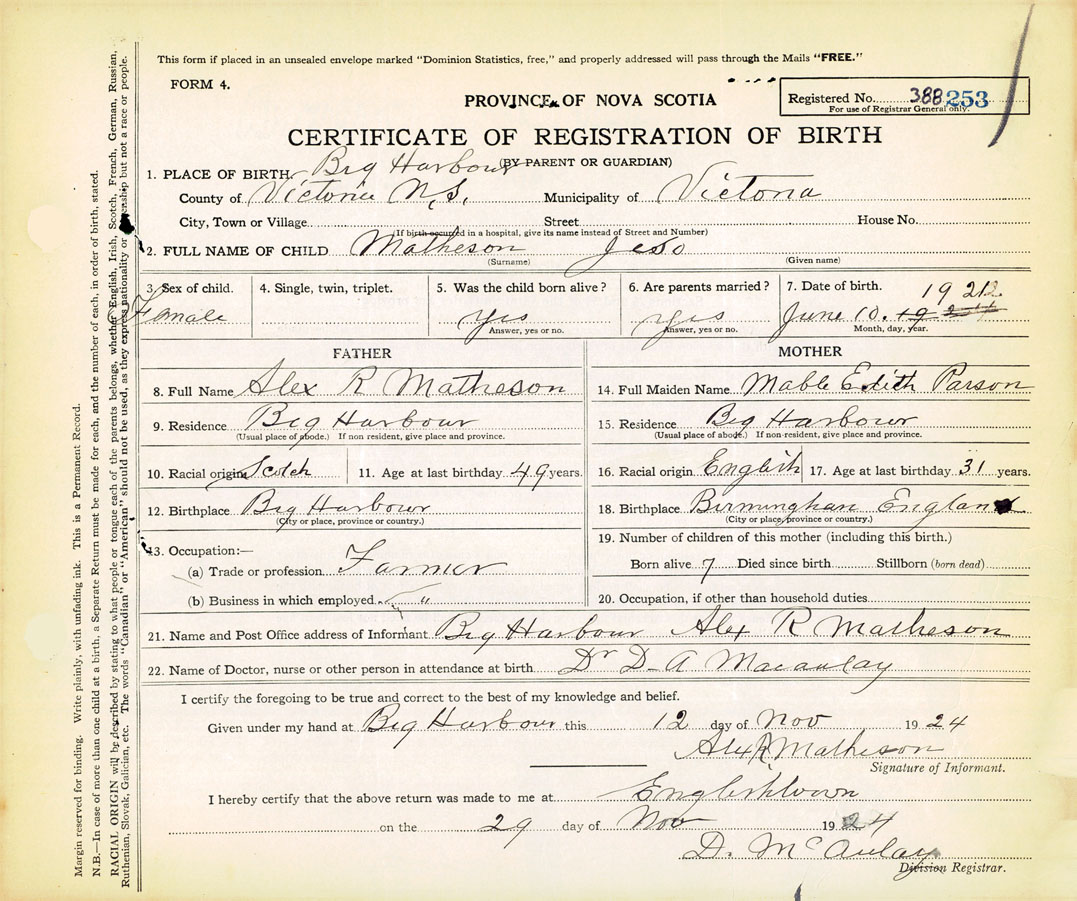 This form if placed in an unsealed envelope marked "Dominion Statistics, free," and properly addressed will pass through the Mails "FREE."
FORM 4.
PROVINCE OF NOVA SCOTIA
Registered No. 388 253
For use of Registrar General only.
CERTIFICATE OF REGISTRATION OF BIRTH
(BY PARENT OR GUARDIAN)
1. PLACE OF BIRTH. Big Harbour
County of Victoria N.S. Municipality of Victoria
City, Town or Village Street House No.
(If birth occurred in a hospital, give its name instead of Street and Number)
2. FULL NAME OF CHILD Matheson
(Surname) (Given name)
3. Sex of child. 4. Single, twin, triplet. 5. Was the child born alive? 6. Are parents married? 7. Date of birth. 19
Female yes yes June 10. 19
Answer, yes or no. Answer, yes or no. Month, day, year.
FATHER
8. Full Name Alex R Matheson
9. Residence Big Harbour
(Usual place of abode.) If non resident, give place and province.
10. Racial origin Scotch 11. Age at last birthday 49 years.
12. Birthplace Big Harbour
(City or place, province or country.)
13. Occupation:—
(a) Trade or profession Farmer
(b) Business in which employed "
MOTHER
14. Full Maiden Name Mable Edith Parson
15. Residence Big Harbour
(Usual place of abode.) If non-resident, give place and province.
16. Racial origin English 17. Age at last birthday 31 years.
18. Birthplace Birmingham England
(City or place, province or country.)
19. Number of children of this mother (including this birth.)
Born alive 7 Died since birth Stillborn (born dead)
20. Occupation, if other than household duties
21. Name and Post Office address of Informant Big Harbour Alex R Matheson
22. Name of Doctor, nurse or other person in attendance at birth Dr D. A Macaulay
I certify the foregoing to be true and correct to the best of my knowledge and belief.
Given under my hand at Big Harbour this 12 day of Nov 19 24
Alex R Matheson
Signature of Informant.
I hereby certify that the above return was made to me at Englishtown
on the 29 day of Nov 19 24
D. McAulay
Division Registrar.
Margin reserved for binding. Write plainly, with unfading ink. This is a Permanent Record.
N.B.—In case of more than one child at a birth, a Separate Return must be made for each, and the number of each, in order of birth, stated.
RACIAL ORIGIN will be described by stating to what people or tongue each of the parents belongs, whether English, Irish, Scotch, French, German, Russian,
Ruthenian, Slovak, Galician, etc. The words "Canadian" or "American" should not be used, as they express nationality or but not a race or people.